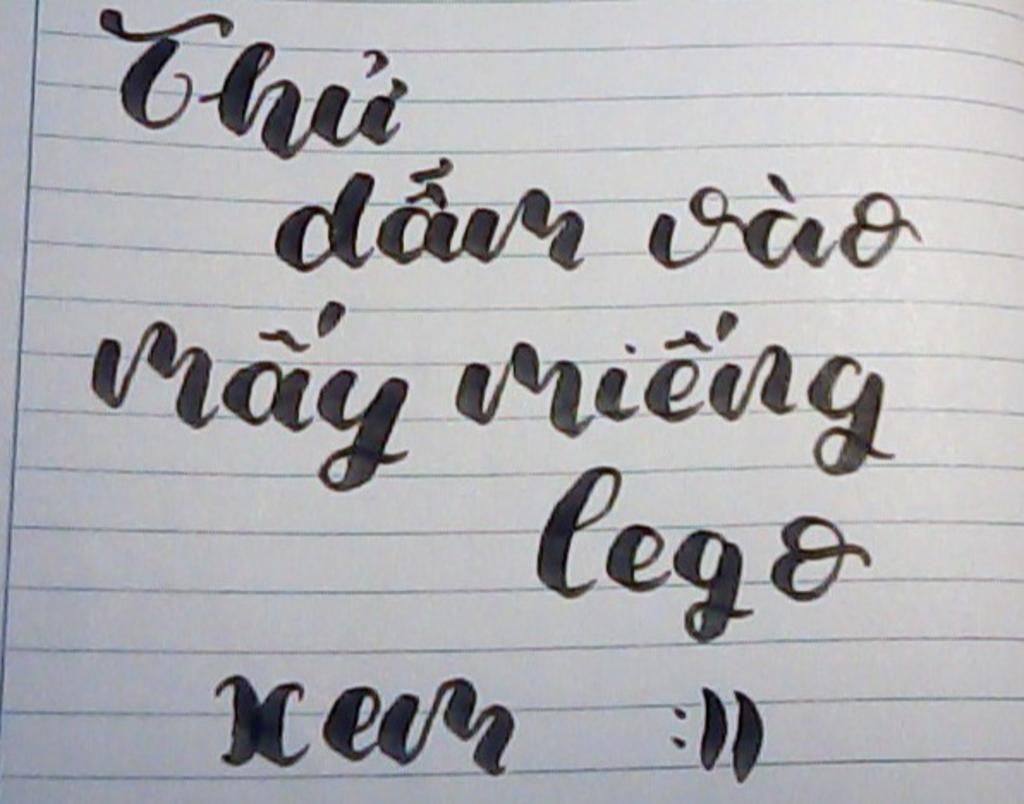 Thử
dấm vào
mấy miếng
lego
xem :))